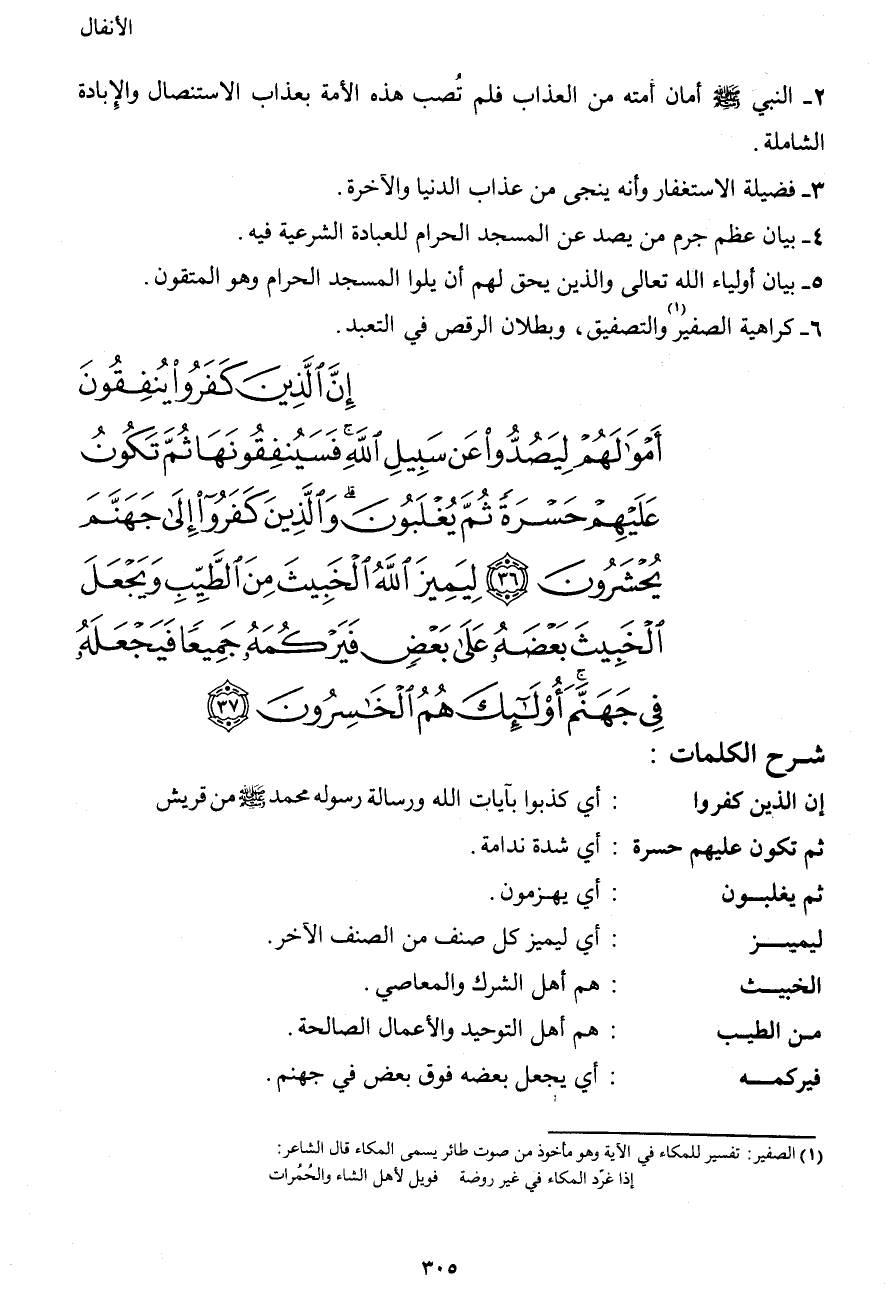 الأنفال
٢ـ النبي ﷺ أمان أمته من العذاب فلم تُصب هذه الأمة بعذاب الاستنصال والإبادة
الشاملة .
٣ـ فضيلة الاستغفار وأنه ينجى من عذاب الدنيا والآخرة .
٤ـ بيان عظم جرم من يصد عن المسجد الحرام للعبادة الشرعية فيه .
٥ـ بيان أولياء الله تعالى والذين يحق لهم أن يلوا المسجد الحرام وهو المتقون .
٦ـ كراهية الصفير(١) والتصفيق ، وبطلان الرقص في التعبد .
إِنَّ ٱلَّذِينَ كَفَرُوا۟ يُنفِقُونَ
أَمْوَٰلَهُمْ لِيَصُدُّوا۟ عَن سَبِيلِ ٱللَّهِ ۚ فَسَيُنفِقُونَهَا ثُمَّ تَكُونُ
عَلَيْهِمْ حَسْرَةً ثُمَّ يُغْلَبُونَ ۗ وَٱلَّذِينَ كَفَرُوٓا۟ إِلَىٰ جَهَنَّمَ
يُحْشَرُونَ ٣٦ لِيَمِيزَ ٱللَّهُ ٱلْخَبِيثَ مِنَ ٱلطَّيِّبِ وَيَجْعَلَ
ٱلْخَبِيثَ بَعْضَهُۥ عَلَىٰ بَعْضٍ فَيَرْكُمَهُۥ جَمِيعًا فَيَجْعَلَهُۥ
فِى جَهَنَّمَ ۚ أُو۟لَـٰٓئِكَ هُمُ ٱلْخَـٰسِرُونَ ٣٧
شرح الكلمات :
إن الذين كفروا : أي كذبوا بآيات الله ورسالة رسوله محمد ﷺ من قريش
ثم تكون عليهم حسرة : أي شدة ندامة .
ثم يغلبون : أي يهزمون .
ليميز : أي ليميز كل صنف من الصنف الآخر .
الخبيث : هم أهل الشرك والمعاصي .
من الطيب : هم أهل التوحيد والأعمال الصالحة .
فيركمه : أي يجعل بعضه فوق بعض في جهنم .
(١) الصفير : تفسير للمكاء في الآية وهو مأخوذ من صوت طائر يسمى المكاء قال الشاعر :
إذا غرّد المكاء في غير روضة فويل لأهل الشاء والحُمُرات
٣٠٥